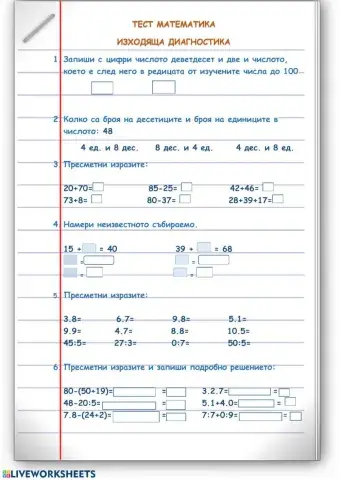 ТЕСТ МАТЕМАТИКА
ИЗХОДЯЩА ДИАГНОСТИКА
1. Запиши с цифри числото деветдесет и две и числото,
което е след него в редицата от изучените числа до 100
2. Колко са броя на десетиците и броя на единиците в
числото: 48
4 ед. и 8 дес. 8 дес. и 4 ед. 4 дес. и 8 ед.
3. Пресметни изразите:
20+70= 85-25= 42+46=
73+8= 80-37= 28+39+17=
4. Намери неизвестното събираемо.
15 + = 40 39 + = 68
= =
= =
5. Пресметни изразите:
3.8= 6.7= 9.8= 5.1=
9.9= 4.7= 8.8= 10.5=
45:5= 27:3= 0:7= 50:5=
6. Пресметни изразите и запиши подробно решението:
80-(50+19)= = 3.2.7= =
48-20:5= = 5.1+4.0= =
7.8-(24+2)= = 7:7+0:9= =
LIVEWORKSHEETS